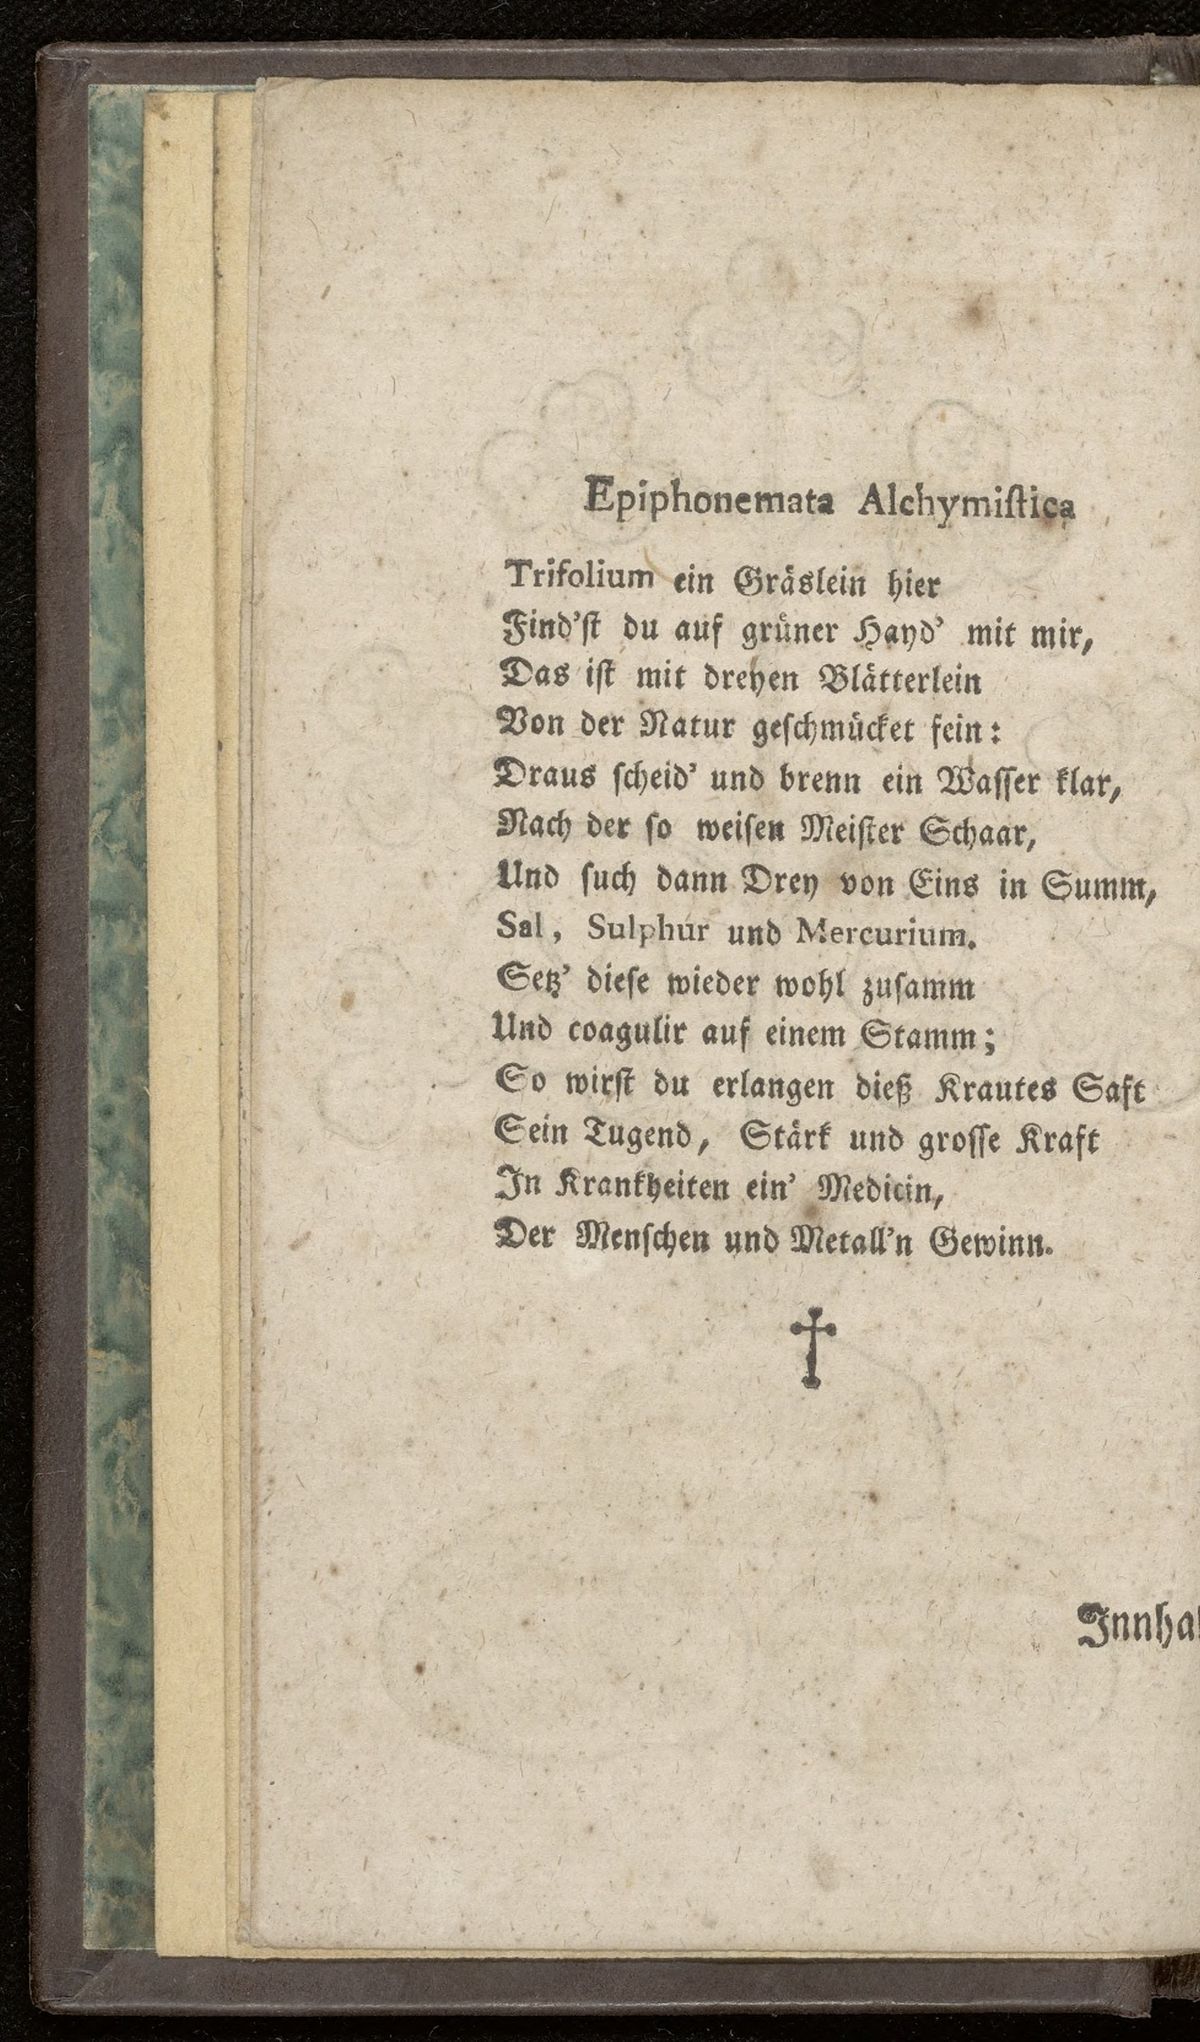 Epiphonemata Alchymiſtica
Trifolium ein Gräslein hier
Find'ſt du auf grüner Hayd' mit mir,
Das iſt mit dreyen Blätterlein
Von der Natur geſchmücket fein:
Draus ſcheid' und brenn ein Waſſer klar,
Nach der ſo weiſen Meiſter Schaar,
Und ſuch dann Drey von Eins in Summ,
Sal, Sulphur und Mercurium.
Setz' dieſe wieder wohl zuſamm
Und coagulir auf einem Stamm;
So wirſt du erlangen dieß Krautes Saft
Sein Tugend, Stärk und groſſe Kraft
In Krankheiten ein' Medicin,
Der Menſchen und Metall'n Gewinn.
†